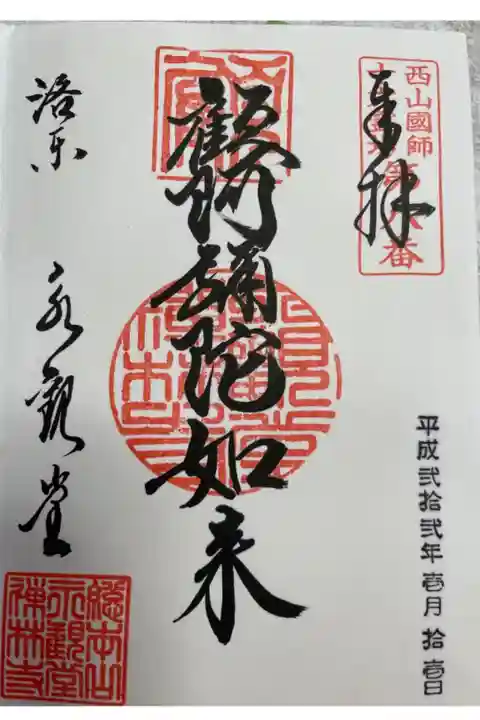 西山國師
奉拝
平成弐拾弐年壱月拾壱日
顧阿彌陀如来
洛東 永觀堂
總本山
永觀堂
禅林寺